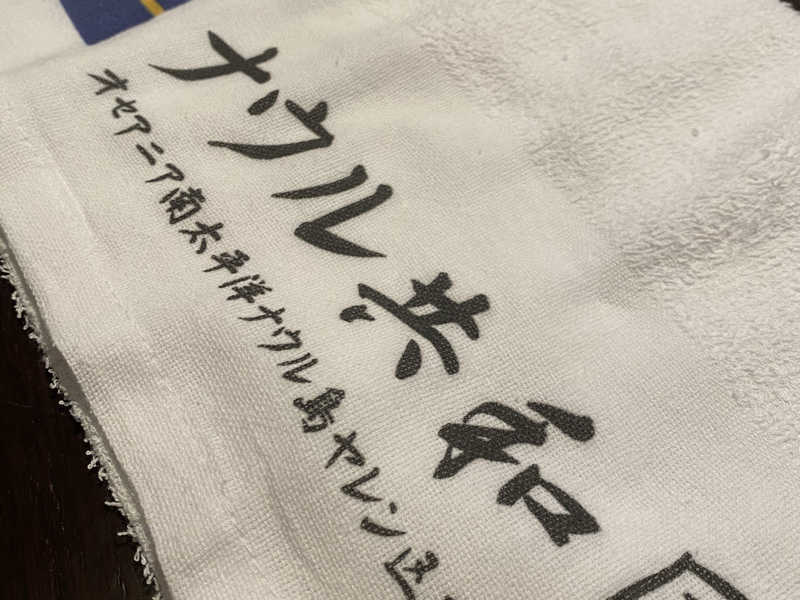 ナウル共和
オセアニア南太平洋ナウル島ヤレン区